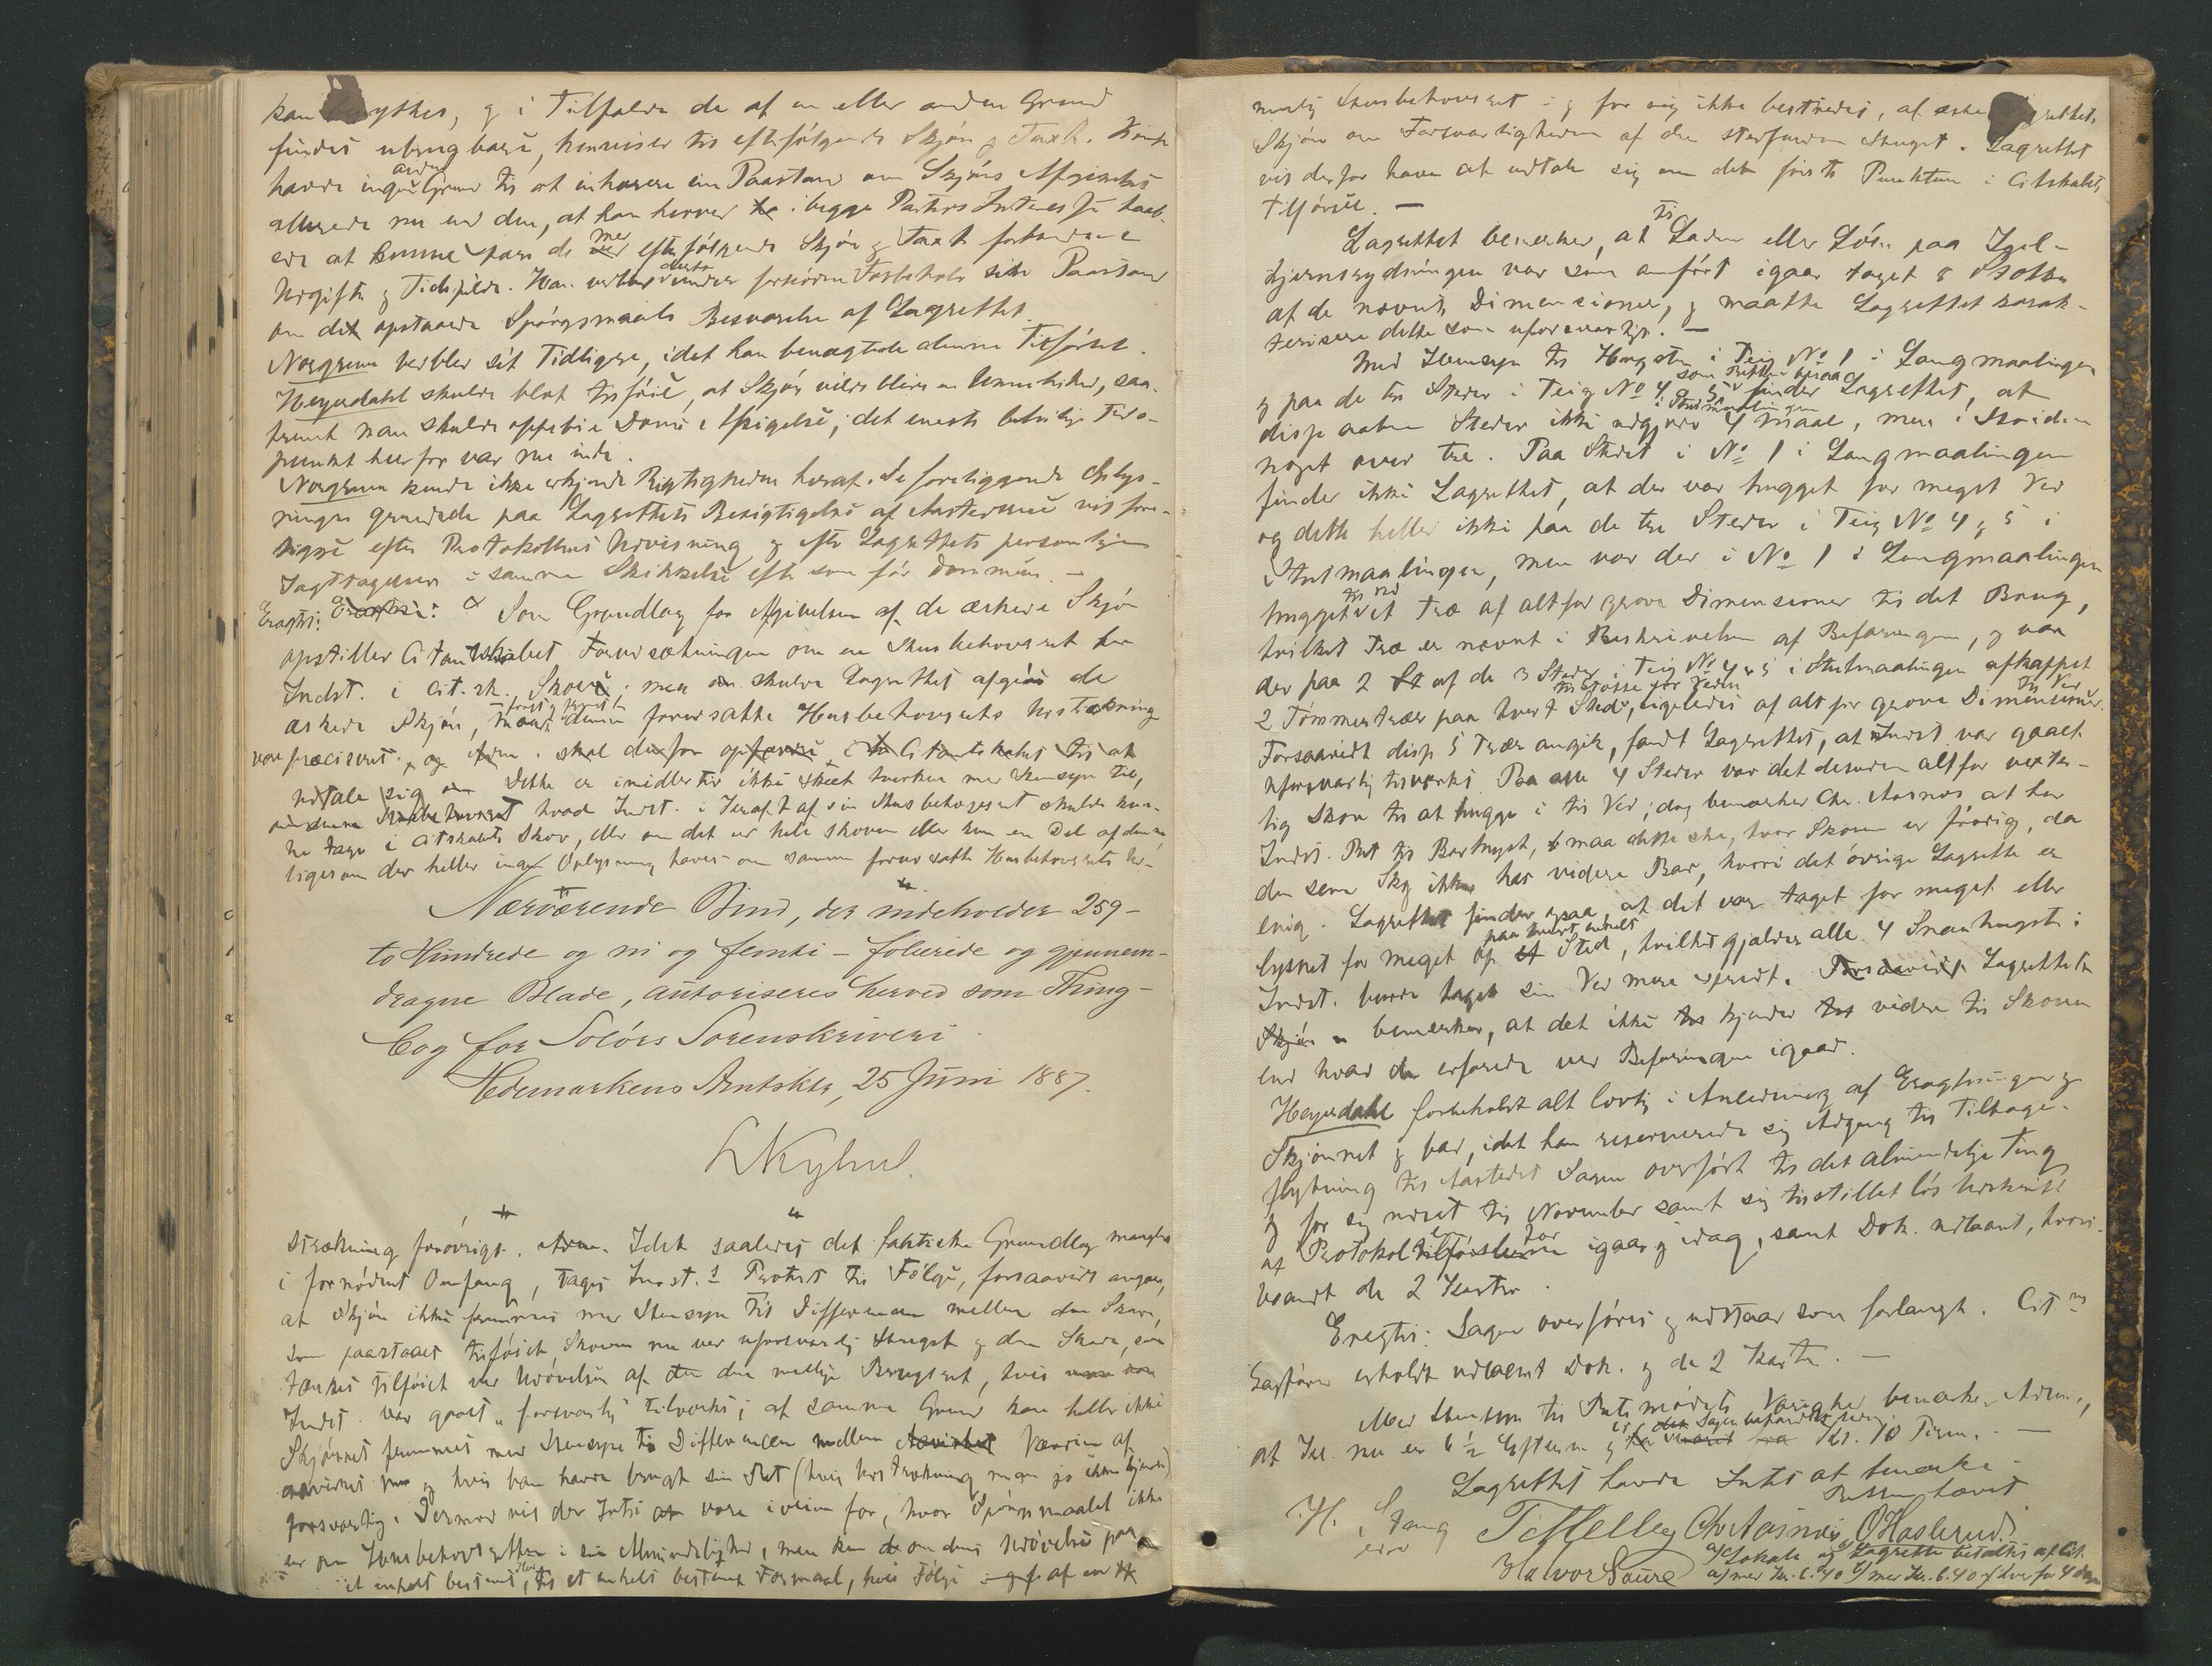 kan benyttes, og i Tilfælde de af en eller anden Grund
findes ubrugbare, henviser til efterfølgende Skjøn og Taxt. Komp
havde ingen anden Grund til at inhærere sin Paastand om Skjøns Afgivelse
allerede nu end den, at han herved i begge Parters Interesse haab-
ede at kunne spare de med efterfølgende Skjøn og Taxt forbundne
Udgifter og Tidsspilde. Han under foranførte Forbehold sin Paastand
om det opstaaede Spørgsmaals Besvarelse af Lagrettet.
Norgrenn vedblev sit Tidligere, idet han benægtede denne Tilførsel.
Heyerdahl skulde blot tilføie, at Skjøn vilde blive en Umulighed, saa-
fremt man skulde oppebie Doms Afsigelse; det eneste beleilige Tids-
punkt herfor var nu inde.
Norgrenn kunde ikke erkjende Rigtigheden heraf. De foreliggende Oplys-
ninger grundede paa Lagrettets Besigtigelse af Aastederne vil fore-
ligge efter Protokollens Udvisning og efter Lagrettets personlige
Iagttagelser i samme Skikkelse efter som før Dommen. —
Eragtet: Som Grundlag for Afgivelsen af de æskede Skjøn
opstiller Citantskabet Forudsætningen om en Husbehovsret for
Indst. i Cit.sk. Skove; men skulde Lagrettet afgive de
æskede Skjøn, maatte først og fremst denne forudsatte Husbehovsrets Udstrækning
være præciseret.
Dette er imidlertid ikke skeet hverken med Hensyn til,
hvad Indst. i Kraft af sin Husbehovsret skulde kun-
ne tage i Citskabets Skov, eller om det er hele Skoven eller kun en Del af denne
ligesom der heller ingen Oplysning haves om samme forudsatte Husbehovsrets Ud-
Nærværende Bind, der indeholder 259 –
to Hundrede og ni og femti – folierede og gjennem-
dragne Blade, autoriseres herved som Thing-
bog for Solørs Sorenskriveri
Hedemarkens Amtsktr, 25 Juni 1887.
strækning forøvrigt. Idet saaledes det faktiske Grundlag mangler
i fornødent Omfang, tages Indst.s Protest til Følge, forsaavidt angaar,
at Skjøn ikke fremmes med Hensyn til Differencen mellem den Skade,
som paastaaes tilføiet Skoven nu ved uforsvarlig Hugst og den Skade, som
tænkes tilføiet ved Udøvelse af den nævnte Brugsret, hvis
Indst. var gaaet „forsvarlig“ tilværks; af samme Grund kan heller ikke
Skjønnet fremmes med Hensyn til Differencen mellem Værdien af
og hvis han havde brugt sin Ret (hvis Udstrækning man jo ikke kjender)
forsvarlig. Dermed vil der Intet være i veien for, hvor Spørgsmaalet ikke
er om Husbehovsretten i sin Almindelighed, men kun om dens Udøvelse paa
et enkelt bestemt Sted, til et enkelt bestemt Formaal, hvis Følge af en
nævnte Husbehovsret i og for sig ikke bestrides, at æske Lagrettets
Skjøn om Forsvarligheden af den stedfundne Hugst. Lagrettet
vil derfor have at udtale sig om det første Punktum i Citskabets
Tilførsel. —
Lagrettet bemærker, at til Laden eller Løen paa Igel-
kjernsrydningen var som anført igaar taget 8 Stokke
af de nævnte Dimensioner, og maatte Lagrettet karak-
terisere dette som uforsvarligt. —
Med Hensyn til Hugsten i Teig No 1 i Langmaalingen
og paa de tre Steder i Teig No 4 og 5 finder Lagrettet, at
disse aabne Steder ikke udgjorde 4 Maal, men i Høiden
noget over tre. Paa Stedet i No 1 i Langmaalingen
finder ikke Lagrettet, at der var hugget for meget Ved
og dette heller ikke paa de tre Steder i Teig No 4 og 5 i
Stutmaalingen, men var der i No 1 i Langmaalingen
hugget til Ved et Træ af altfor grove Dimensioner til det Brug,
hvilket Træ er nævnt i Beskrivelsen af Befaringen, og var
der paa 2 af de 3 Steder i Teig No 4 og 5 i Stutmaalingen afkappet
2 Tømmertrær paa hvert Sted, ligeledes af altfor grove Dimensioner til Ved.
Forsaavidt disse 5 Trær angik, fandt Lagrettet, at Indst var gaaet
uforsvarlig tilværks. Paa alle 4 Steder var det desuden altfor vexter-
lig Skov til at hugge i til Ved; dog bemærker Chr. Aasnæs, at har
Indst. Ret til Barhugst, maa dette ske, hvor Skoven er frodig, da
den sene Skog ikke har videre Bar, hvori det øvrige Lagrette er
enig. Lagrettet finder ogsaa at det var taget for meget eller
lysnet for meget op paa hvert enkelt Sted, hvilket gjælder alle 4 Snauhugster;
Indst. burde taget sin Ved mere spredt. Lagrettet
bemærker, at det ikke kjender videre til Skoven
end hvad de erfarede ved Befaringen igaar.
Heyerdahl forbeholdt alt lovlig i Anledning af Eragtningen og
Skjønnet og bad, idet han reserverede sig Adgang til Tilbage-
flytning til Aastedet Sagen overført til det almindelige Ting
og for sig udsat til November samt sig tilstillet løs Udskrift
af Protokoltilførslerne for igaar og idag, samt Dok. udlaant, hvori-
blandt de 2 Karter.
Eragtet: Sagen overføres og udstaar som forlangt. Cits
Sagfører erholdt udlaant Dok. og de 2 Karter. —
Med Hensyn til Retsmødets Varighed bemærkes,
at Kl. nu er 6 ½ Efterm. og
Lagrettet havde Intet at bemærke.
Retten hævet
H. Stang T. Helley Chr Aasnæs O Haslerud
edsv Halvor Soure a) Lokale og b) Lagrette betaltes af Cit.